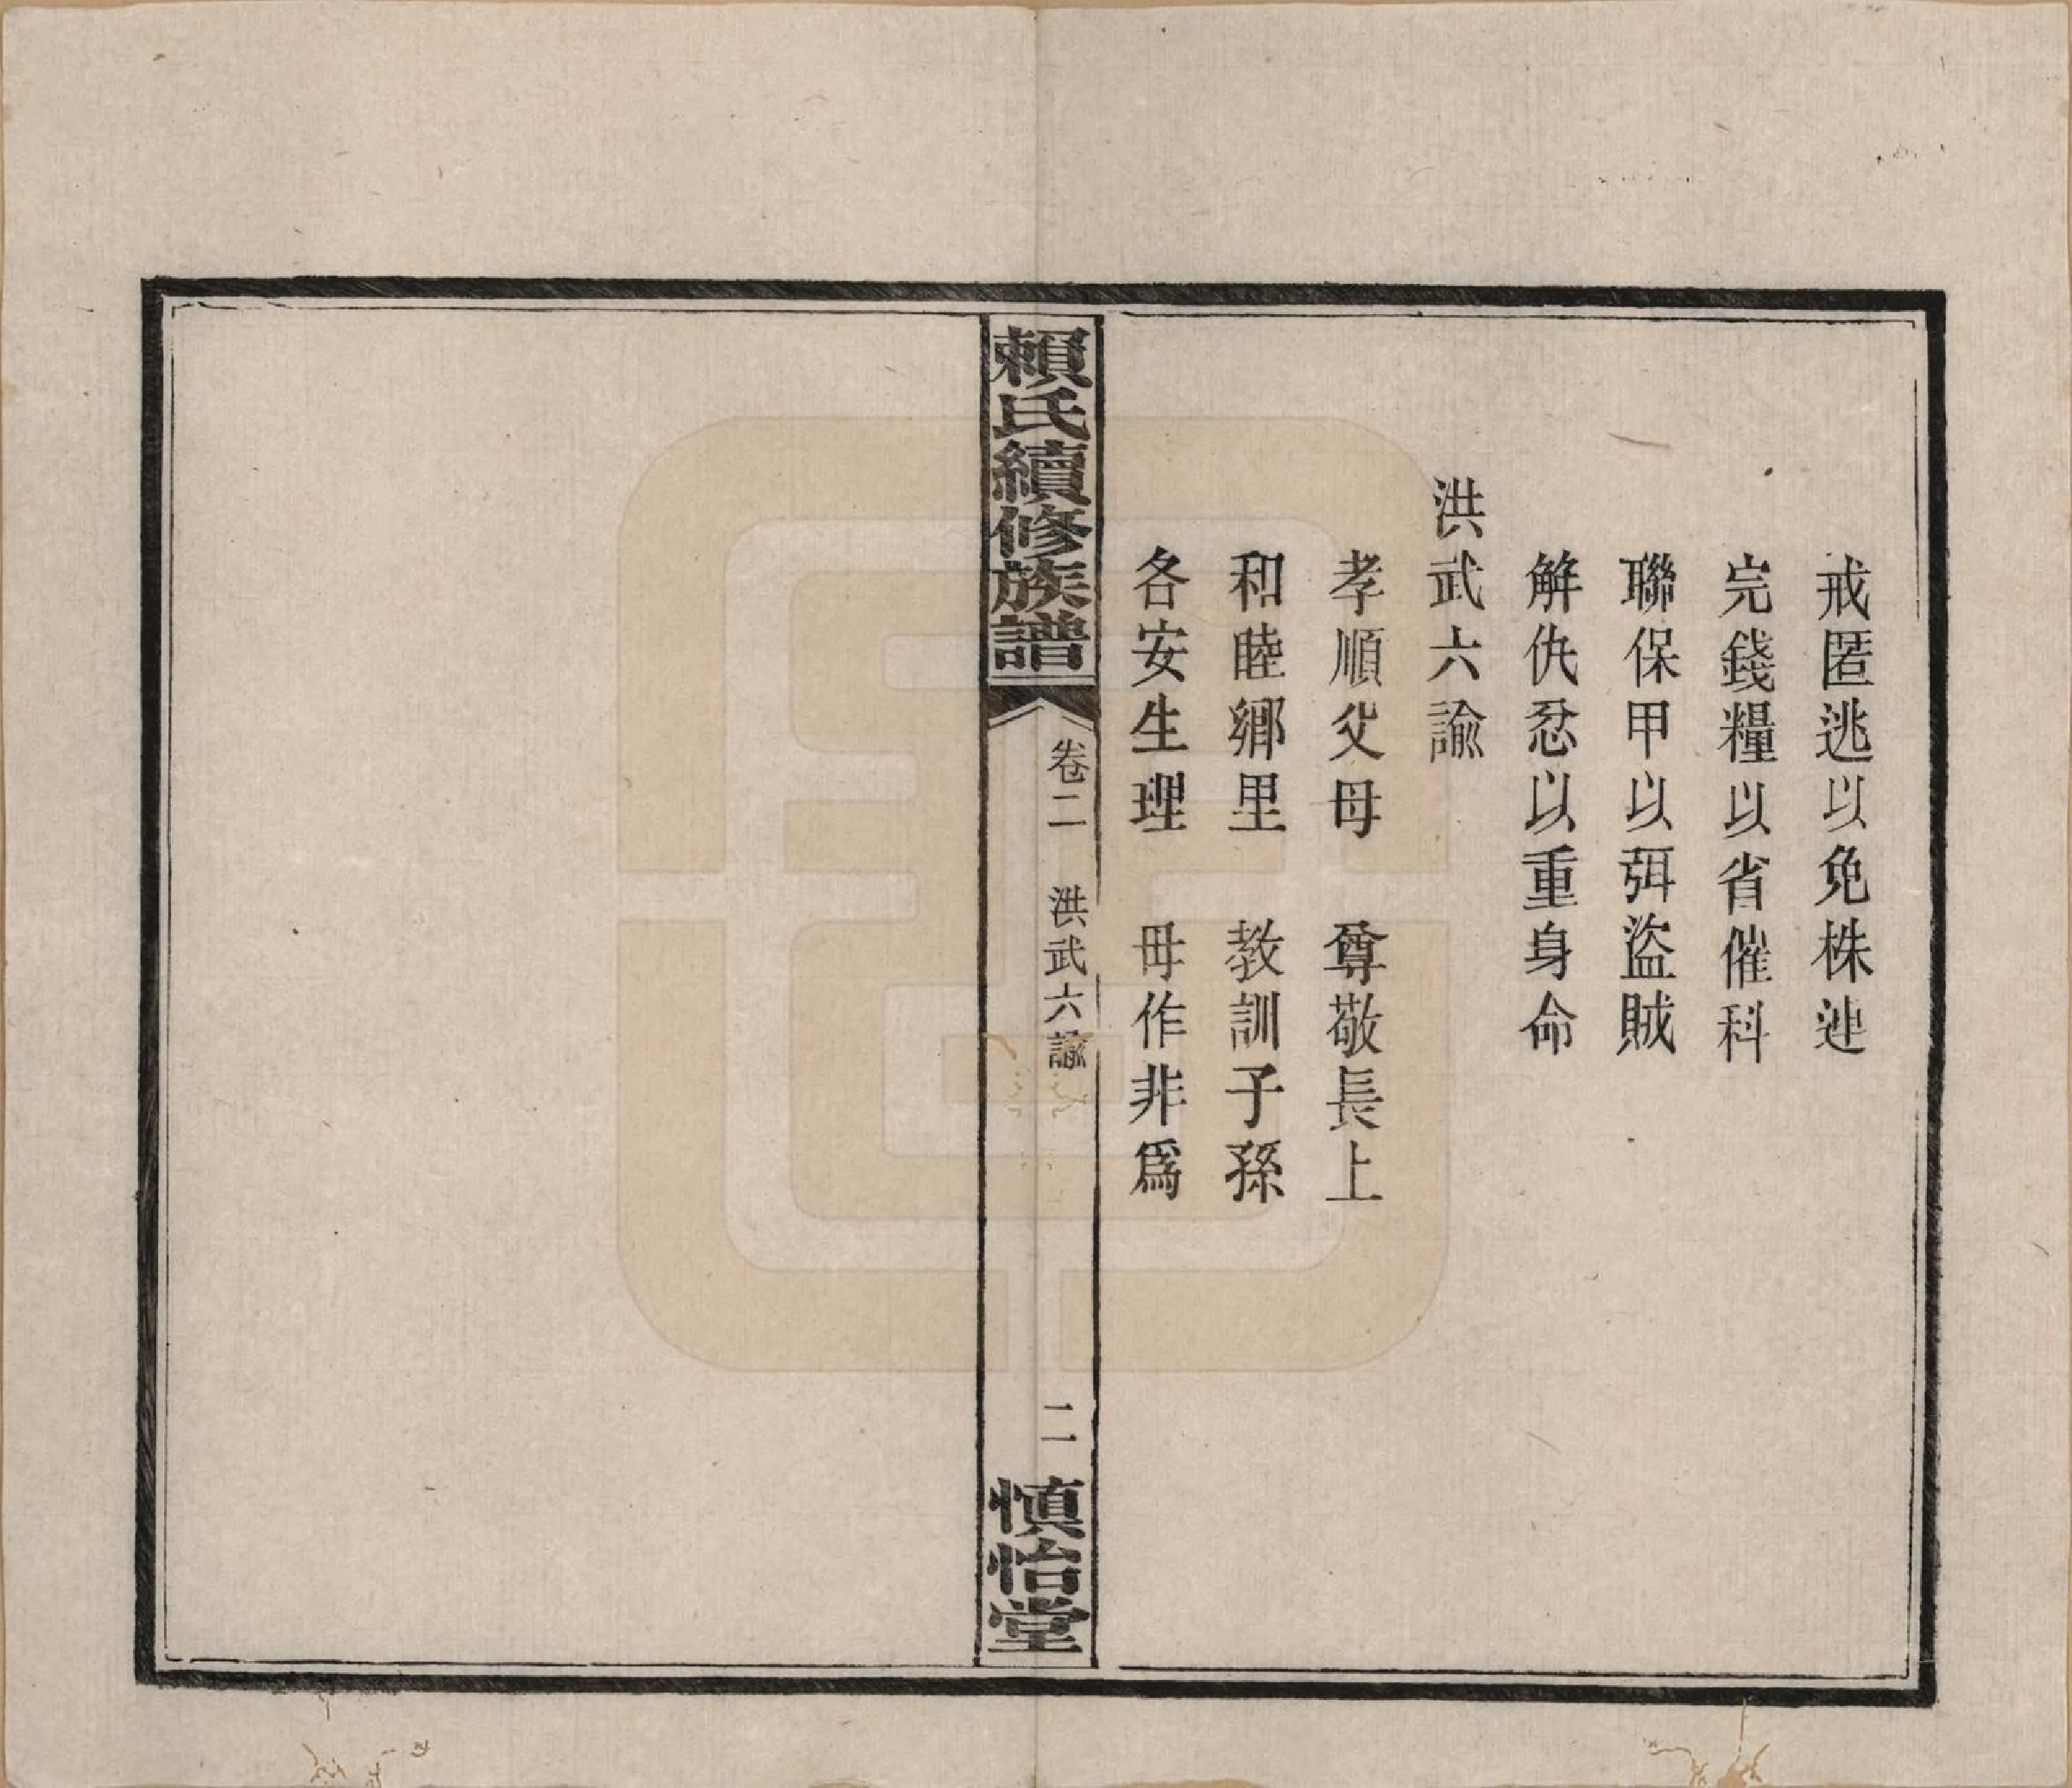 戒匿逃以免株連
完錢糧以省催科
聯保甲以弭盜賊
解仇忿以重身命
洪武六諭
孝順父母　尊敬長上
和睦鄉里　教訓子孫
各安生理　毋作非爲
賴氏續修族譜
卷二　洪武六諭
二
慎怡堂